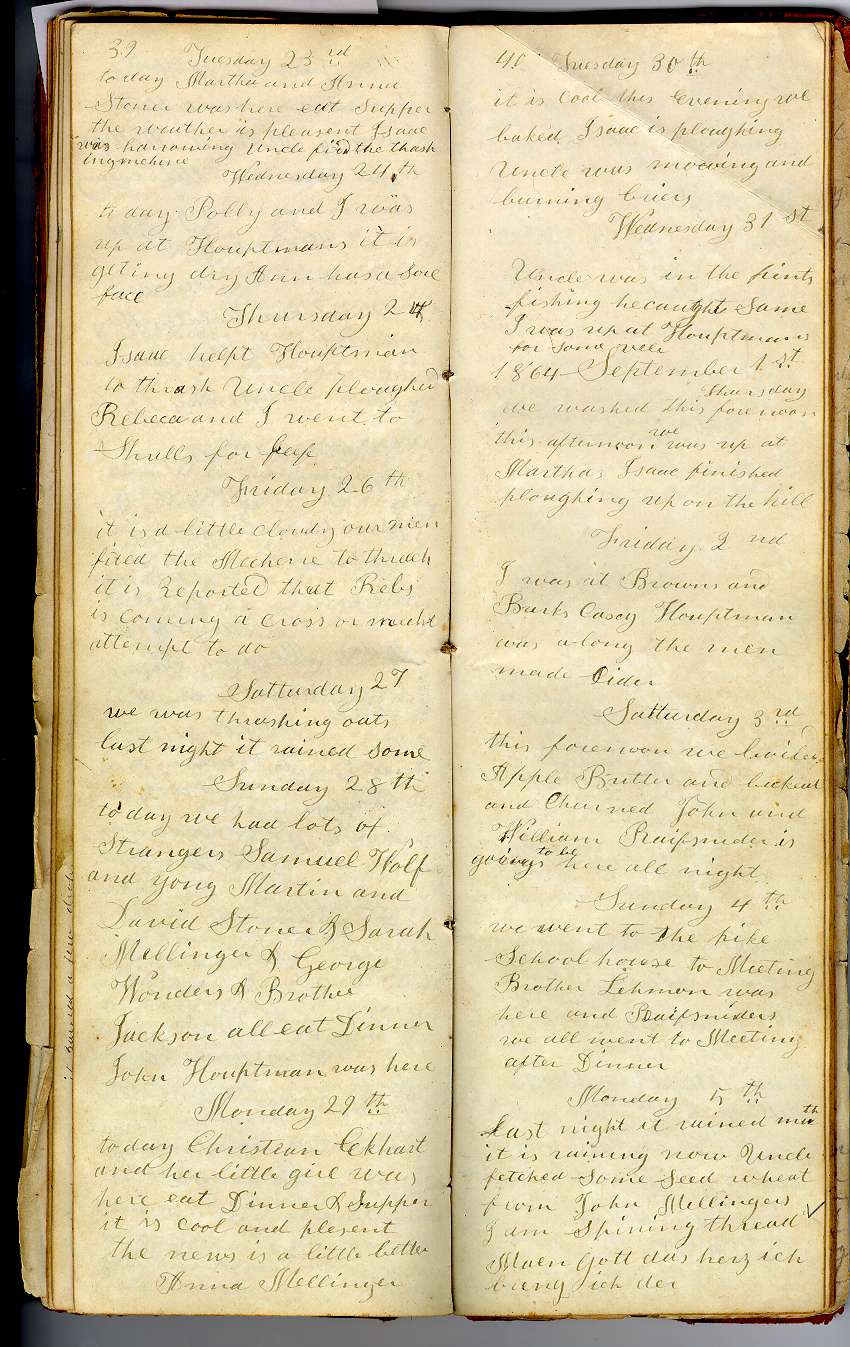 39 Tuesday 23rd
to day Martha and Anna
Stoner was here eat Supper
the weather is pleasent Isaac
was harrowing Uncle fixed the thrash
ing mehine
Wednesday 24th
to day Polly and I was
up at Houptmans it is
geting dry Ann has a Sore
face
Thursday 25
Isaac helpt Houptman
to thrash Uncle ploughed
Rebeca and I went to
Shulls for
Friday 26th
it is a little cloudy our men
fixed the Mecherie to thrash
it is Reported that Rebs
is coming a cross or
attempt to do
Satturday 27
we was thrashing oats
last night it rained some
Sunday 28th
to day we had lots of
Strangers Samuel Wolf
and yong Martin and
David Stoner & Sarah
Mellinger & George
Wonders & Brother
Jackson all eat Dinner
John Houptman was here
Monday 29th
to day Christean Eckhart
and her little girl was
here eat Dinner & Supper
it is cool and plesent
the news is a little better
Anna Mellinger
it rained a few drops
40 Tuesday 30th
it is Cool this Evening we
baked Isaac is ploughing
Uncle was mowing and
burning briers
Wednesday 31st
Uncle was in the
fishing he caught Some
I was up at Houptmans
for some
1864 September 1st
Thursday
we washed this forenoon
this afternoon we was up at
Marthas Isaac finished
ploughing up on the hill
Friday 2nd
I was at Browns and
Barks Casey Houptman
was along the men
made Cider
Satturday 3rd
this forenoon we boiled
Apple Butter and
and Churned John and
William Raifsnider is
going to be here all night
Sunday 4th
we went to the pike
School house to Meeting
Brother Lehmon was
here and Raifsniders
we all went to Meeting
after Dinner
Monday 5th
Last night it rained
it is raining now Uncle
fetched Some Seed wheat
from John Mellingers
I am Spining thread
Maen Gott das herz ich
bring ich der